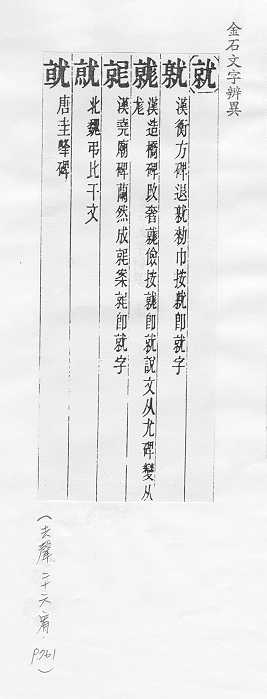 金石文字辨異
就
漢衡方碑退就勑巾按就即就字
漢造橋碑改奢就儉按就即就說文从尤碑變从
尨
漢堯廟碑蘭然成就案就即就字
北魏弔比干文
唐圭峯碑
(去聲二十六宥.P761)